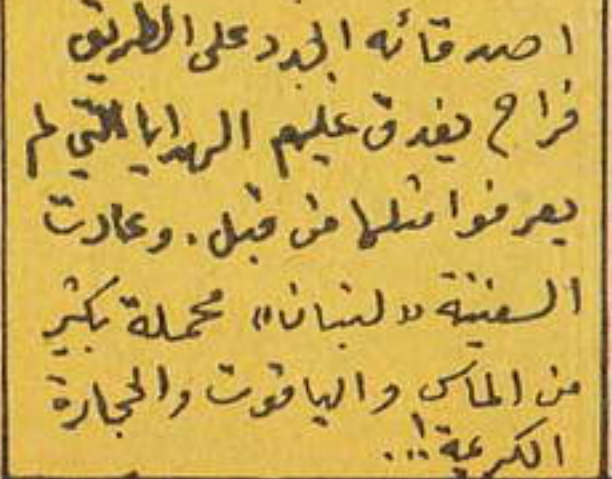 اصدقائه الجدد على الطريق
فراح يغدق عليهم الهدايا التي لم
يعرفوا مثلها من قبل. وعادت
السفينة «لبنان» محملة بكثير
من الماس والياقوت والحجارة
الكريمة!..